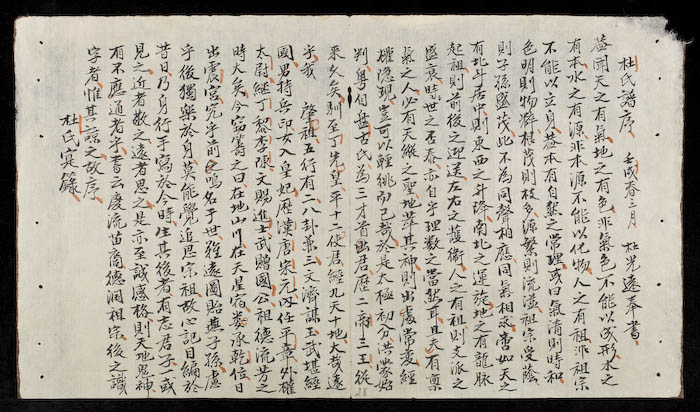 杜氏譜序 壬戌春三月 杜光遠奉書
蓋聞天之有氣地之有色非氣色不能以成形水之
有本水之有源非本源不能以化物人之有祖非祖宗
不能以立身蓋本有自然之常理或曰氣清則時和
色明則物粹根茂則枝多源繁則流溢祖宗受蔭
則子孫盛茂此不為同聲相應同氣相求嘗如天之
有北斗居中則東西之升降南北之運旋地之有龍脉
起祖則前後之迎送左右之護衛人之有祖則支派之
盛衰時世之否泰亦自乎理數之當然耳且夫有稟
氣之人必有天縱之聖地萃其神則出處常变經
權隱現豈可以輕挑而已哉於是太極初分洪蒙始
判粵自盤古氏為三才首出君歷二帝三王從
來久矣馴至丁先皇平十二使君經九天十地大哉遠
乎哉 肇祖五行有二八卦兼三文濟謨玉武堪經
國男持兵印女入皇妃歷漢唐宋元四任平章外確
太尉經丁黎李陳文賜進士武贈國公祖德流芳之
時大矣今富籌之曰在地山川在天星宿婁承乾位日
出震宮完乎前之鳴名于世雖遠圖貽燕子孫慮
乎後獨樂於身莫能覺追思宗祖故心記目編於
昔日乃身行手寫於今時生其後者有志君子或
見之近者數之遠者思之是亦至誠感格則天地鬼神
有不應通者乎書云慶流苗裔德潤祖宗後之識
字者惟其諒之故序
杜氏寔錄
28